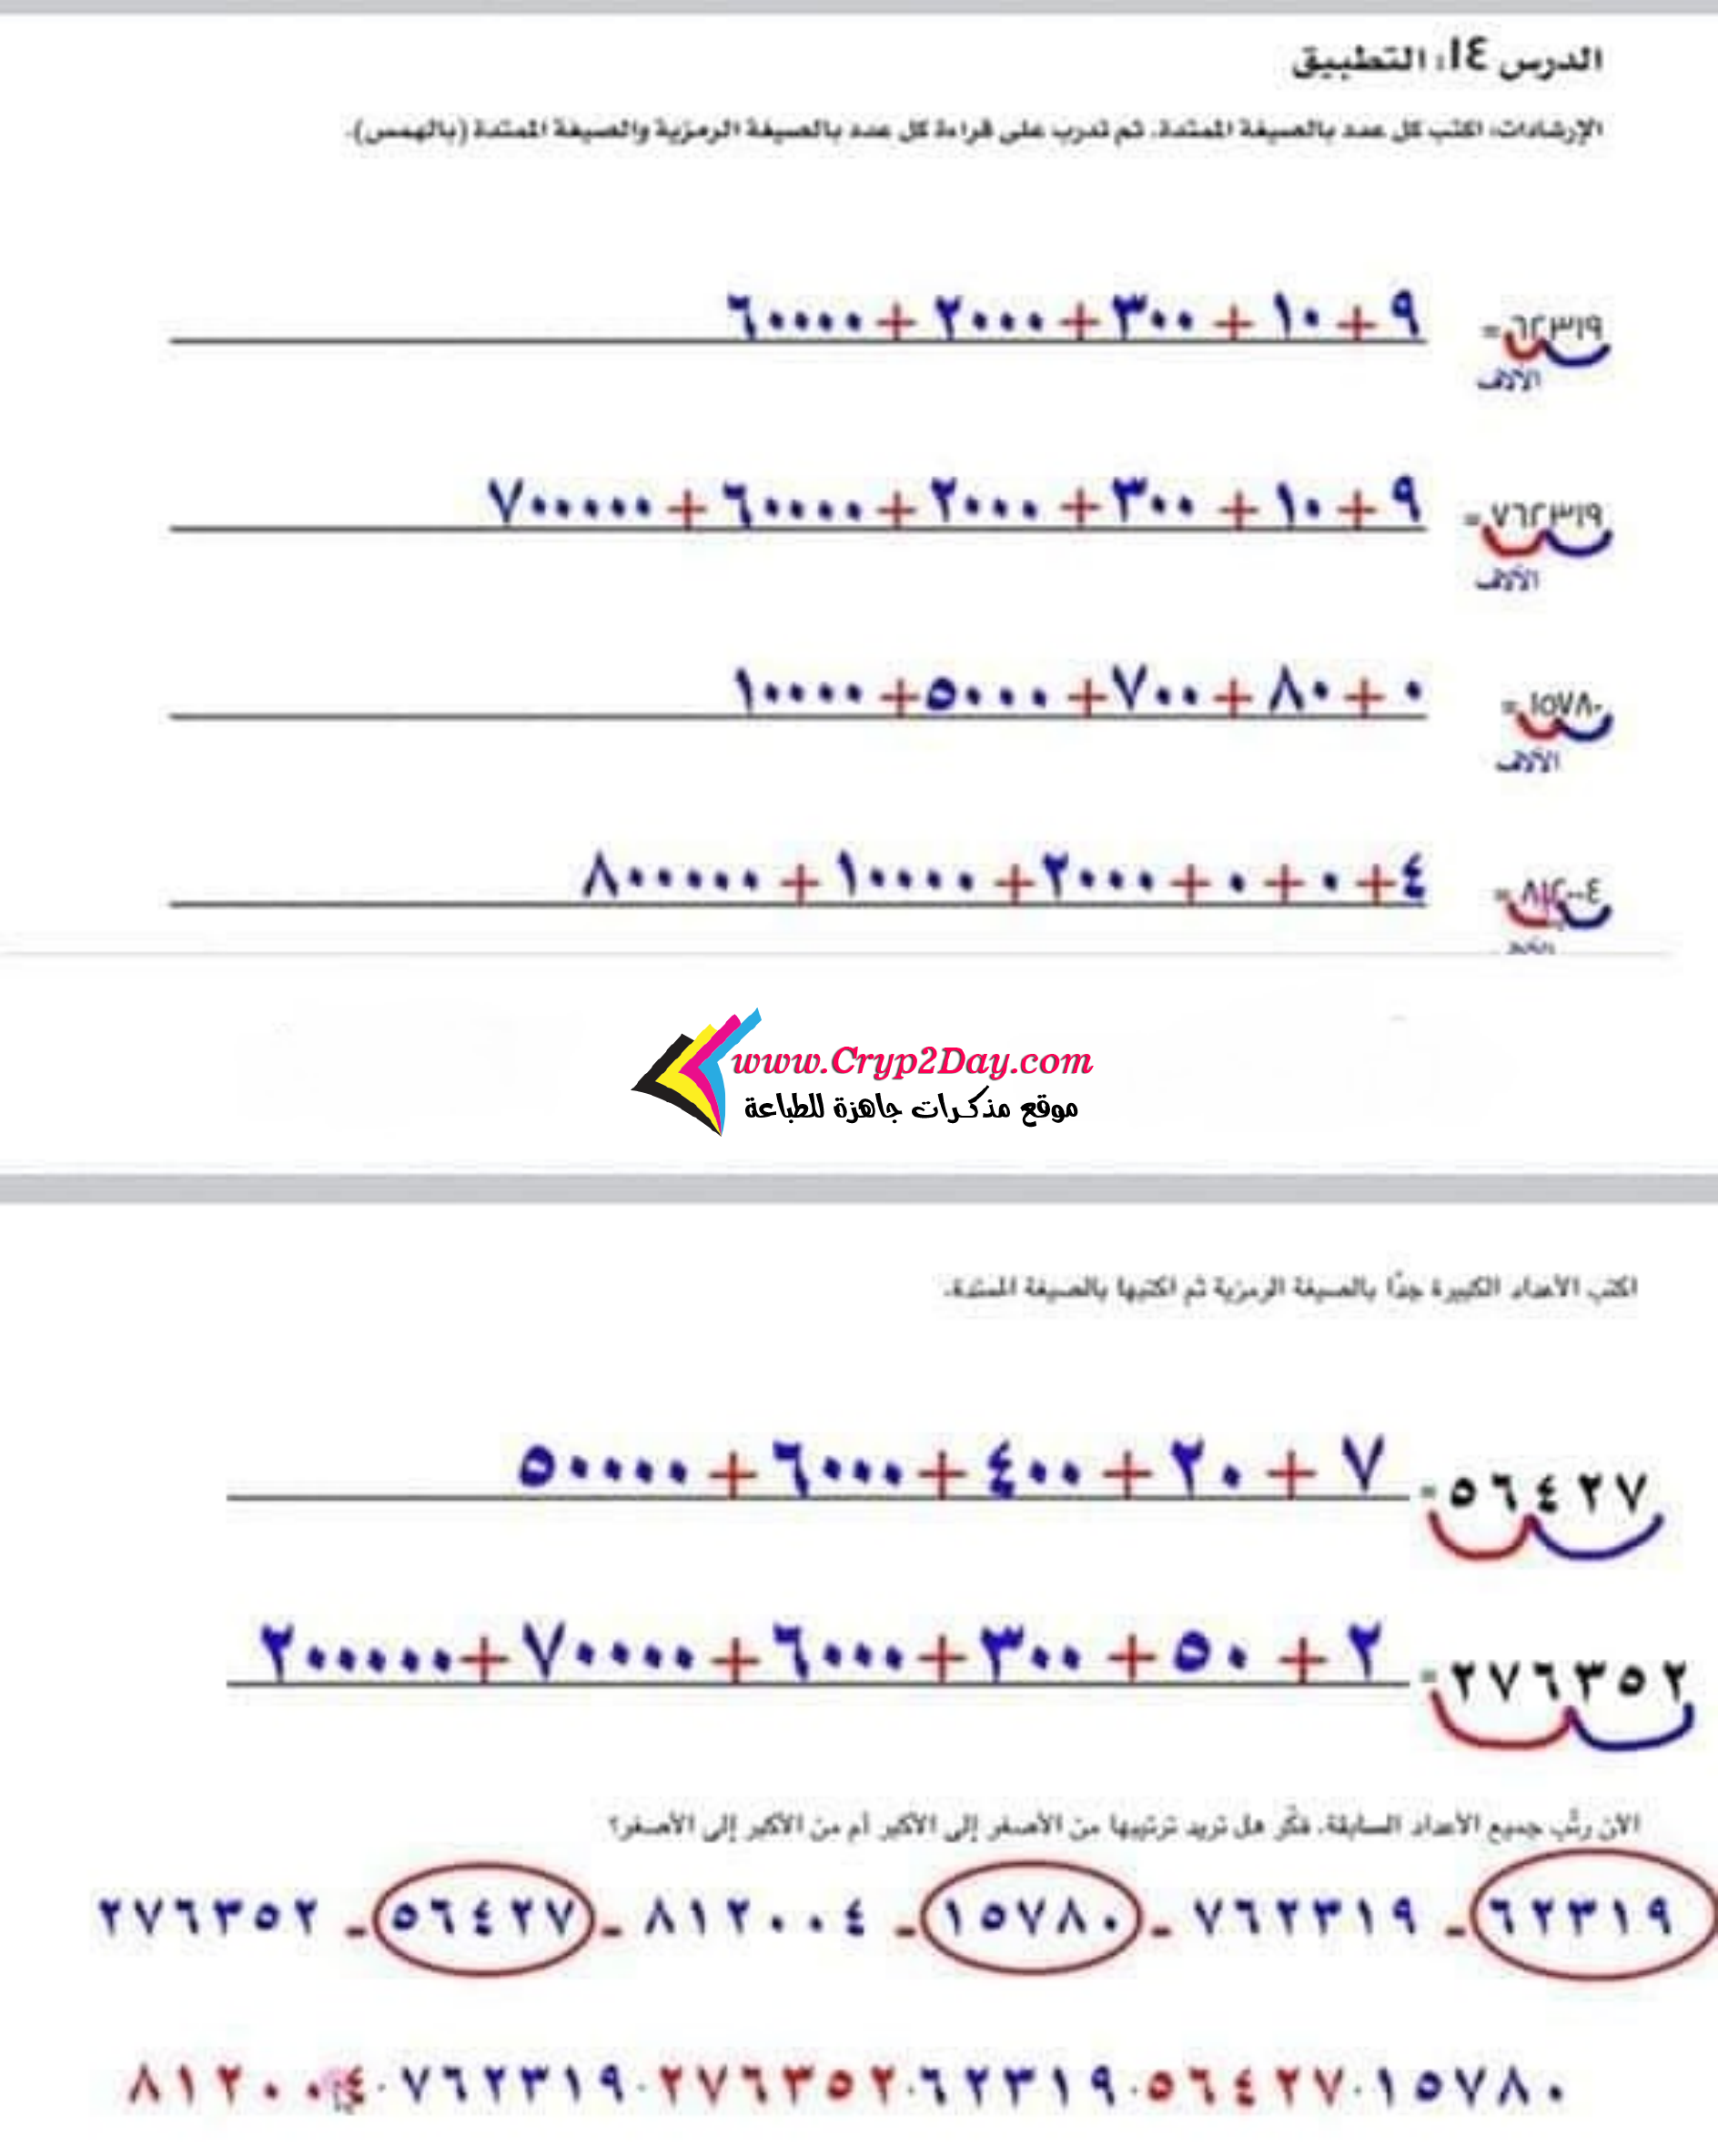 الدرس ١٤: التطبيق
الإرشادات: اكتب كل عدد بالصيغة الممتدة. ثم تدرب على قراءة كل عدد بالصيغة الرمزية والصيغة الممتدة (بالهمس).
٦٢٣١٩ = ٩ + ١٠ + ٣٠٠ + ٢٠٠٠ + ٦٠٠٠٠
الآلاف
٧٦٢٣١٩ = ٩ + ١٠ + ٣٠٠ + ٢٠٠٠ + ٦٠٠٠٠ + ٧٠٠٠٠٠
الآلاف
١٥٧٨٠ = ٠ + ٨٠ + ٧٠٠ + ٥٠٠٠ + ١٠٠٠٠
الآلاف
٨١٢٠٠٤ = ٤ + ٠ + ٠ + ٢٠٠٠ + ١٠٠٠٠ + ٨٠٠٠٠٠
www.Cryp2Day.com
موقع مذكرات جاهزة للطباعة
اكتب الأعداد الكبيرة جدًا بالصيغة الرمزية ثم اكتبها بالصيغة الممتدة.
٥٦٤٢٧ = ٧ + ٢٠ + ٤٠٠ + ٦٠٠٠ + ٥٠٠٠٠
٢٧٦٣٥٢ = ٢ + ٥٠ + ٣٠٠ + ٦٠٠٠ + ٧٠٠٠٠ + ٢٠٠٠٠٠
الآن رتّب جميع الأعداد السابقة. فكّر هل تريد ترتيبها من الأصغر إلى الأكبر أم من الأكبر إلى الأصغر؟
٦٢٣١٩ - ٧٦٢٣١٩ - ١٥٧٨٠ - ٨١٢٠٠٤ - ٥٦٤٢٧ - ٢٧٦٣٥٢
١٥٧٨٠ . ٥٦٤٢٧ . ٦٢٣١٩ . ٢٧٦٣٥٢ . ٧٦٢٣١٩ . ٨١٢٠٠٤